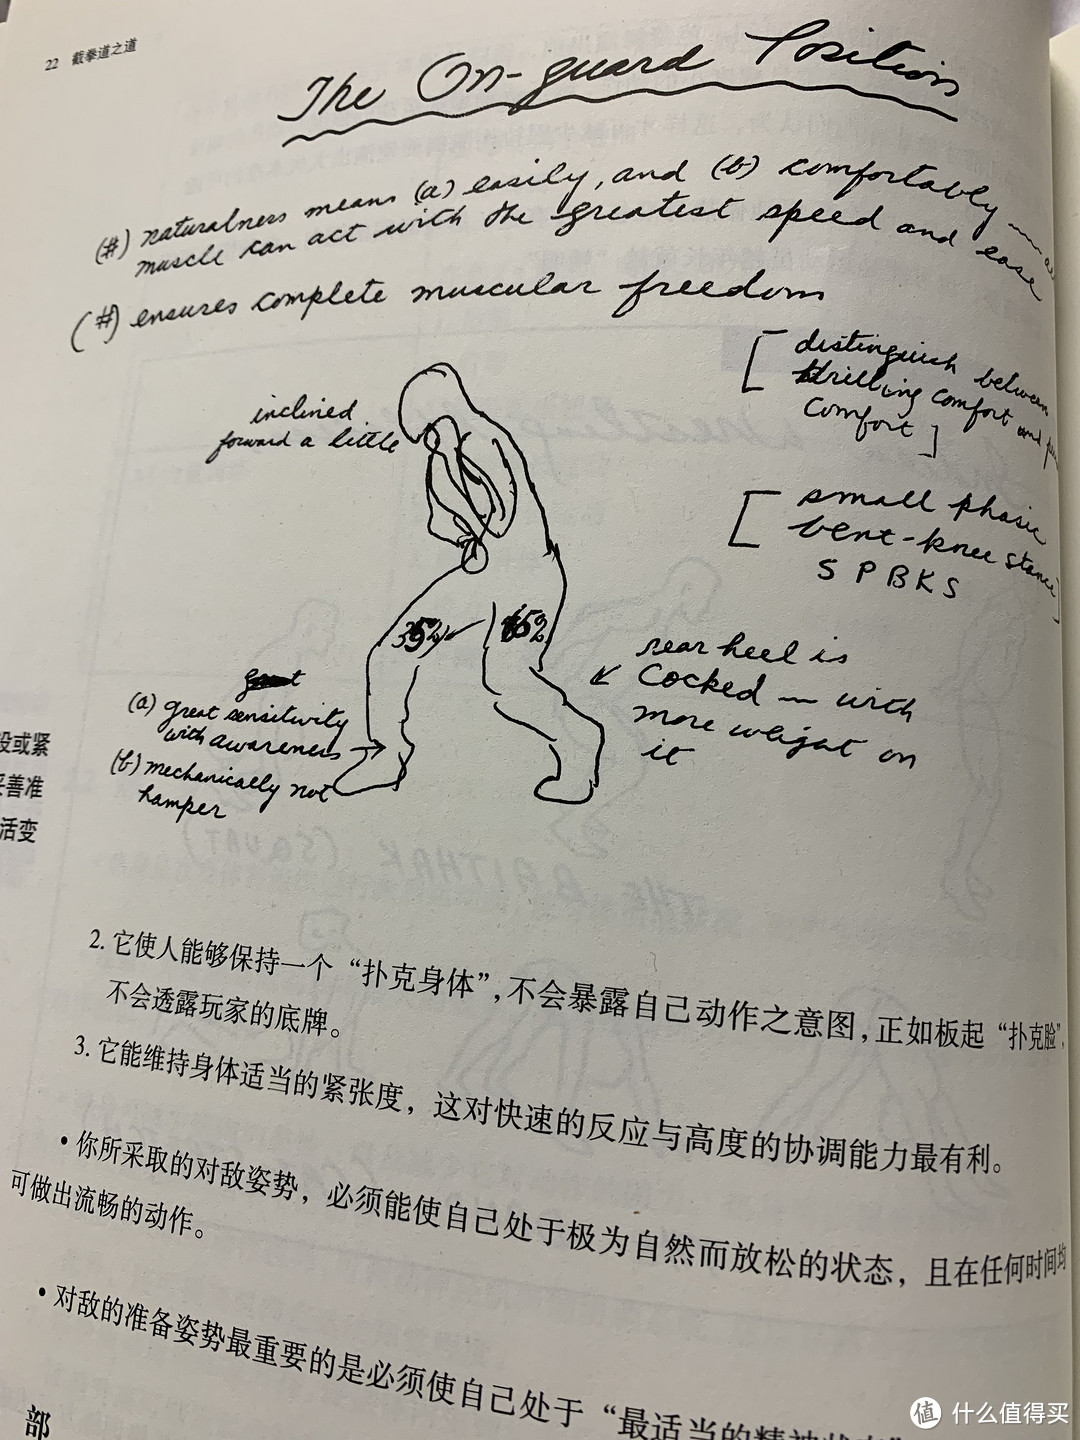 22 截拳道之道
The On-guard Position
(#) naturalness means (a) easily, and (b) comfortably — all
muscle can act with the greatest speed and ease
(#) ensures complete muscular freedom
[ distinguish between
drilling comfort and
comfort ]
inclined
forward a little
[ small phasic
bent-knee stance ]
S P B K S
35%
65%
rear heel is
cocked — with
more weight on
it
(a) great sensitivity
with awareness
(b) mechanically not
hamper
没或紧
妥善准
活变
2. 它使人能够保持一个“扑克身体”,不会暴露自己动作之意图,正如板起“扑克脸”,
不会透露玩家的底牌。
3. 它能维持身体适当的紧张度，这对快速的反应与高度的协调能力最有利。
• 你所采取的对敌姿势，必须能使自己处于极为自然而放松的状态，且在任何时间均
可做出流畅的动作。
• 对敌的准备姿势最重要的是必须使自己处于“最适当的精神状态”
部
值 什么值得买